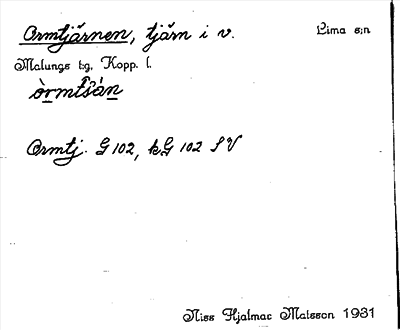 Ormtjärnen, tjärn i v. Lima s:n
Malungs tg. Kopp. l.
òrmtšän
Ormtj. G 102, kG 102 SV
Niss Hjalmar Matsson 1931